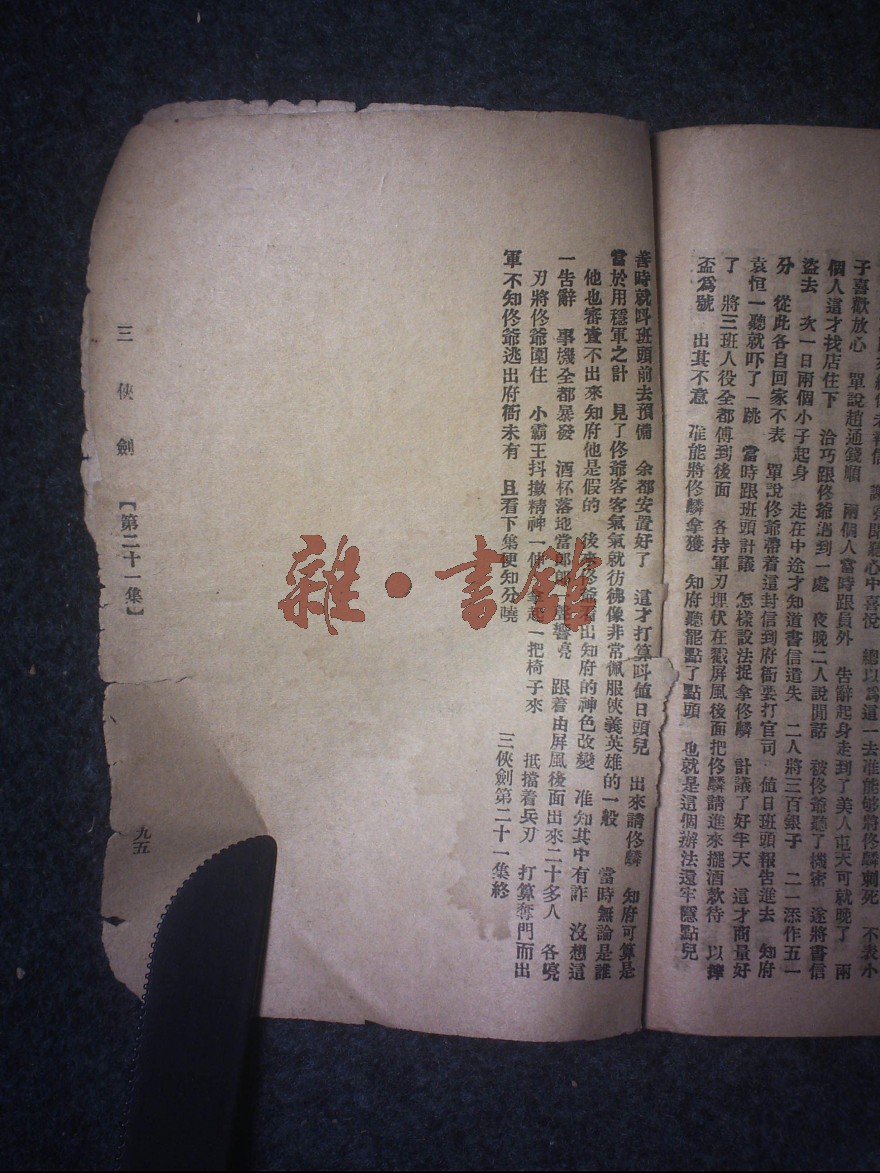 子喜歡放心　單說趙通錢順　兩個人當時跟員外　告辭起身走到了美人屯天可就晚了　兩
個人這才找店住下　洽巧跟佟爺遇到一處　夜晚二人說閒話　被佟爺聽了機密　遂將書信
盜去　次一日兩個小子起身　走在中途才知道書信遺失　二人將三百銀子　二一添作五一
分　從此各自回家不表　單說佟爺帶着這封信到府衙要打官司　值日班頭報告進去　知府
袁恒一聽就吓了一跳　當時跟班頭計議　怎樣設法捉拿佟麟　計議了好半天　這才商量好
了　將三班人役全都傅到後面　各持軍刃埋伏在戳屏風後面把佟麟請進來擺酒欵待　以摔
盃爲號　出其不意　准能將佟麟拿獲　知府聽罷點了點頭　也就是這個辦法還牢隱點兒
善時就呌班頭前去預備　余都安置好了　這才打算呌值日頭兒　出來請佟麟　知府可算是
當於用穩軍之計　見了佟爺客客氣氣就彷彿像非常佩服俠義英雄的一般　當時無論是誰
他也審查不出來知府他是假的　後來佟爺看出知府的神色改變　准知其中有詐　沒想這
一告辭　事機全都暴發　酒杯落地當啷啷　聲響亮　跟着由屏風後面出來二十多人　各亮
刃將佟爺圍住　小霸王抖擻精神一伸　拿起一把椅子來　抵擋着兵刃　打算奪門而出
軍不知佟爺逃出府衙未有　且看下集便知分曉
三俠劍第二十一集終
三俠劍　【第二十一集】
九五
雜·書館